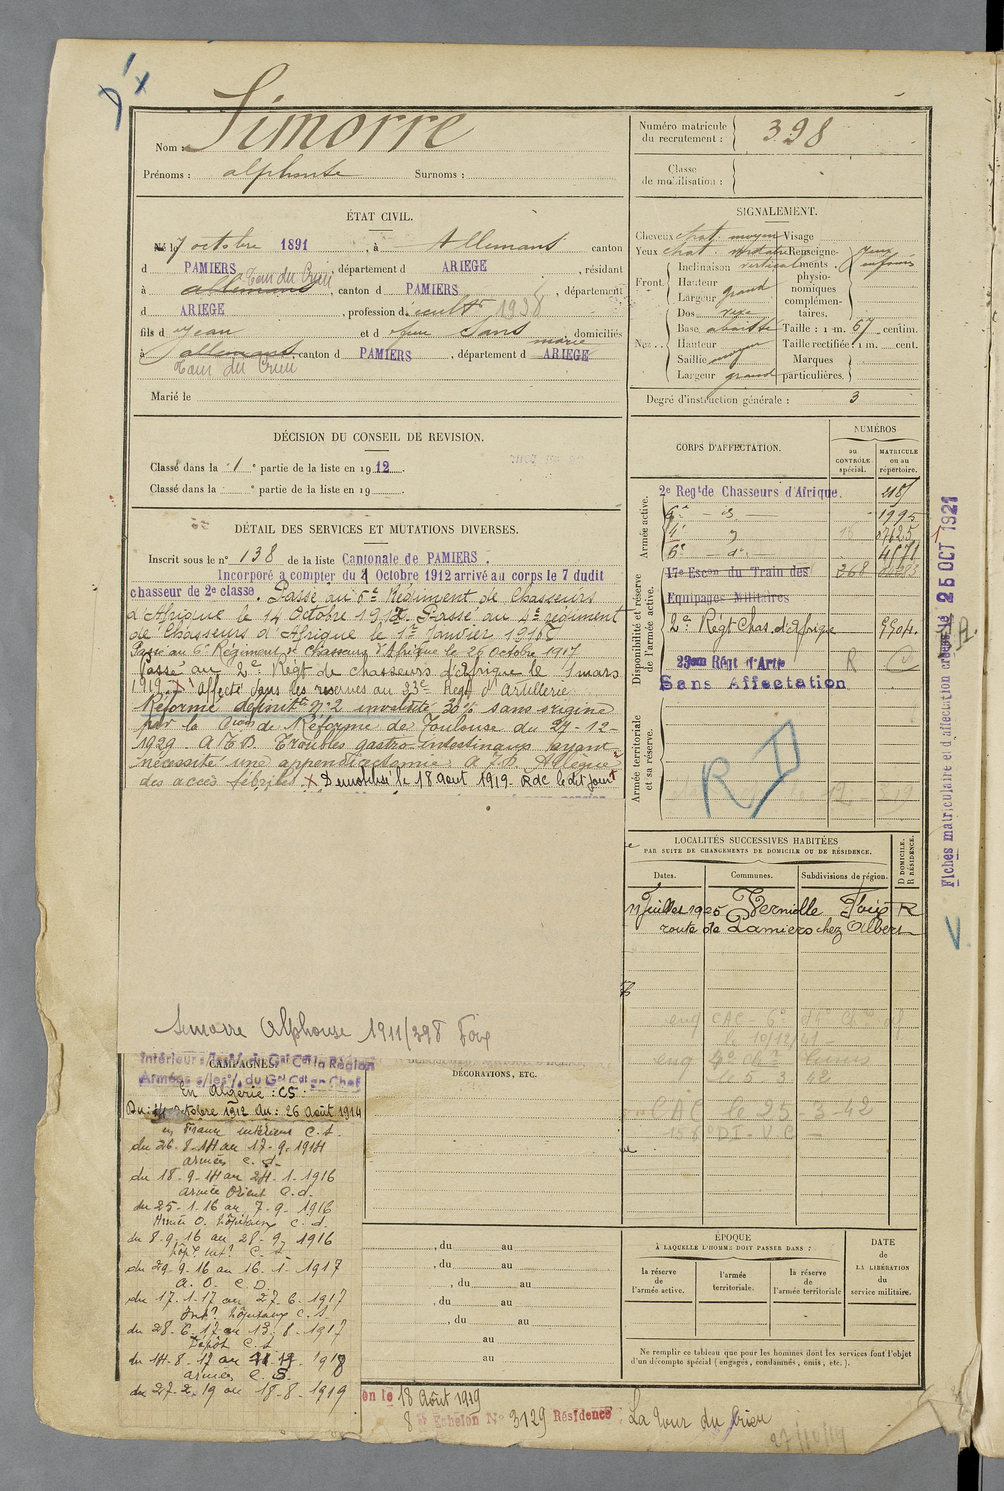 Nom : Simorre
Prénoms : alphonse Surnoms :
Numéro matricule du recrutement : 398
Classe de mobilisation :
ÉTAT CIVIL.
Né le 7 octobre 1891, à Allemans canton
d PAMIERS, département d ARIEGE, résidant
Tour du Crieu
à allemans, canton d PAMIERS, département
d ARIEGE, profession d
fils d Jean et d Sans marie, domiciliés
à allemans, canton d PAMIERS, département d ARIEGE
Tour du Crieu
Marié le
DÉCISION DU CONSEIL DE REVISION.
Classé dans la 1 e partie de la liste en 1912.
Classé dans la e partie de la liste en 19
DÉTAIL DES SERVICES ET MUTATIONS DIVERSES.
Inscrit sous le n° 138 de la liste Cantonale de PAMIERS.
Incorporé a compter du 8 Octobre 1912 arrivé au corps le 7 dudit
chasseur de 2e classe. Passé au 6e Régiment de Chasseurs
d'Afrique le 14 Octobre 1912. Passé au 4e régiment
de Chasseurs d'Afrique le 1er Janvier 1916
Passé au 6e Régiment de Chasseurs d'Afrique le 26 Octobre 1917
Passé au 2e Régt de chasseurs d'afrique le 1 mars
1919. X Affecté dans les reserves au 23e Regt d'Artillerie
Réformé définitt n° 2 invalidité 30% sans origine
par la Con de Réforme de Toulouse du 27-12-
1929. A.T.D. Troubles gastro-intestinaux ayant
nécessité une appendicectomie. A.T.D. Allègue
des accès fébriles. X Démobilisé le 18 aout 1919. RdC le dit jour
Simorre Alphonse 1911/398 Foix
SIGNALEMENT.
Cheveux chat. moyen Visage
Yeux chat. Renseignements physionomiques complémentaires.
Front. Inclinaison vertical
Hauteur
Largeur grand
Nez. Dos
Base
Hauteur
Saillie moyen
Largeur grand
Taille : 1 m. 67 centim.
Taille rectifiée : 1 m. cent.
Marques particulières.
Degré d'instruction générale : 3
CORPS D'AFFECTATION.
NUMÉROS
au CONTRÔLE spécial.
MATRICULE ou au répertoire.
Armée active.
2e Regt de Chasseurs d'Afrique.
6e - d° - 1995
4e d°
6e - d° - 4671
Disponibilité et réserve de l'armée active.
17e Escon du Train des 268
Equipages Militaires
2e Régt Chas. d'Afrique
23eme Régt d'Artie R
Sans Affectation
Armée territoriale et sa réserve.
RD
Fiches matriculaire et d'affectation créées le 25 OCT 1921
LOCALITÉS SUCCESSIVES HABITÉES
PAR SUITE DE CHANGEMENTS DE DOMICILE OU DE RÉSIDENCE.
Dates. Communes. Subdivisions de région. D DOMICILE. R RÉSIDENCE.
Juillet 1925 Verniolle Foix R
route de Pamiers chez Albert
CAC le 25-3-42
CAMPAGNES.
Intérieur s/les o/. du Gal Cdt la Région
Armées s/les o/. du Gal Cdt en Chef
En Algérie : CS.
Du: octobre 1912 au: 26 août 1914
en France intérieur C.S.
du 26-8-14 au 17-9-1914
armées C.d.
du 18-9-14 au 24-1-1916
armée Orient C.d.
du 25-1-16 au 7-9-1916
Armée O. hôpitaux C.d.
du 8-9-16 au 28-9-1916
hôp. int. C.S.
du 29-9-16 au 16-1-1917
A.O. C.D.
du 17-1-17 au 27-6-1917
Int. hôpitaux C.S.
du 28-6-17 au 13-8-1917
Dépôt C.S.
du 14-8-17 au 1918
armées C.S.
du 27-2-19 au 18-8-1919
DÉCORATIONS, ETC.
, du au
, du au
, du au
, du au
, du au
au
au
ÉPOQUE
À LAQUELLE L'HOMME DOIT PASSER DANS :
la réserve de l'armée active.
l'armée territoriale.
la réserve de l'armée territoriale
DATE de LA LIBÉRATION du service militaire.
Ne remplir ce tableau que pour les hommes dont les services font l'objet
d'un décompte spécial (engagés, condamnés, omis, etc.).
le 18 Août 1919
8 e Echelon N° 3129 Résidence : La Tour du Crieu